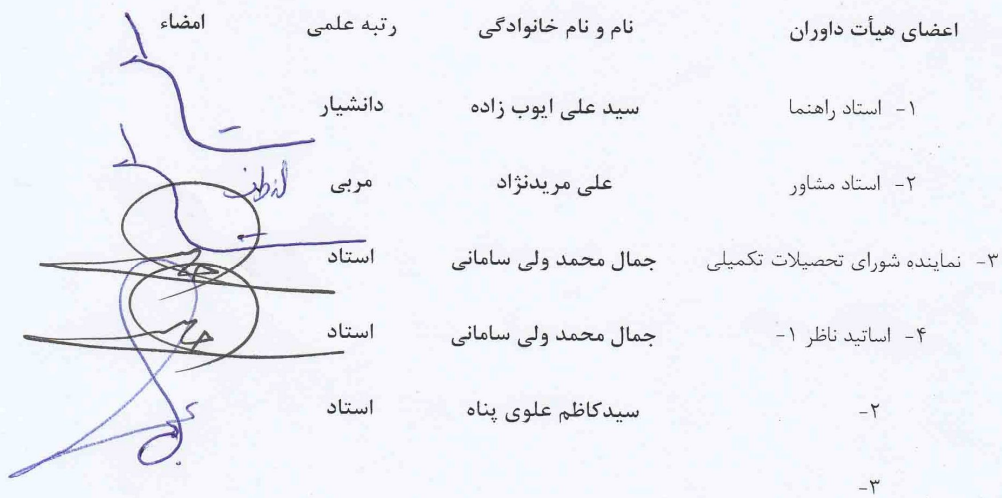 اعضای هیأت داوران نام و نام خانوادگی رتبه علمی امضاء
۱- استاد راهنما سید علی ایوب زاده دانشیار
۲- استاد مشاور علی مریدنژاد مربی
۳- نماینده شورای تحصیلات تکمیلی جمال محمد ولی سامانی استاد
۴- اساتید ناظر ۱- جمال محمد ولی سامانی استاد
۲- سیدکاظم علوی پناه استاد
۳-